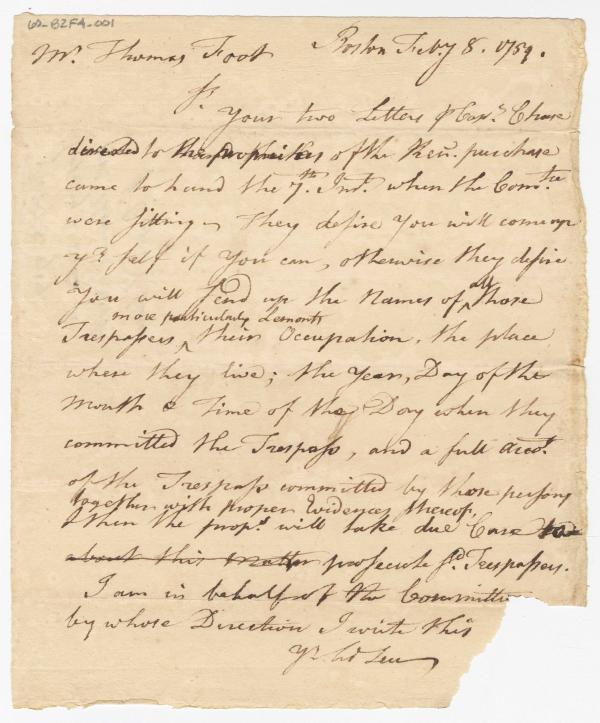 60-B2F4-001
Mr. Thomas Foot Boston Feby 8. 1759.
Sr.
Your two Letters & Capt. Chase
directed to the proprietors of the Ken. purchase
came to hand the 7th. Inst. when the Comtee
were sitting - They desire You will come up
yr self if You can, otherwise they desire
You will send up the Names of all those
more particularly Lemonts
Trespassers their Occupation, the place
where they live; the Year, Day of the
Month & Time of the Day when they
committed the Trespass, and a full Accot.
of the Trespass committed by those persons
together with proper Evidences thereof,
& then the propr. will take due Care to
about this Matter prosecute sd. Trespassers.
I am in behalf of the Committe
by whose Direction I write this
Yr. hl Ser